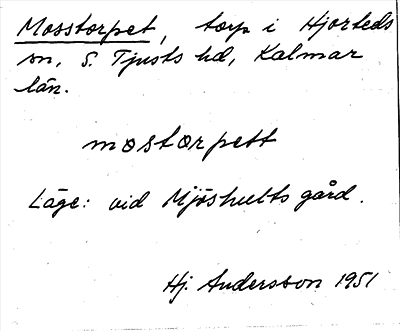 Mosstorpet, torp i Hjorteds
sn, S. Tjusts hd, Kalmar
län.
mostorpett
Läge: vid Mjöshults gård.
Hj. Andersson 1951